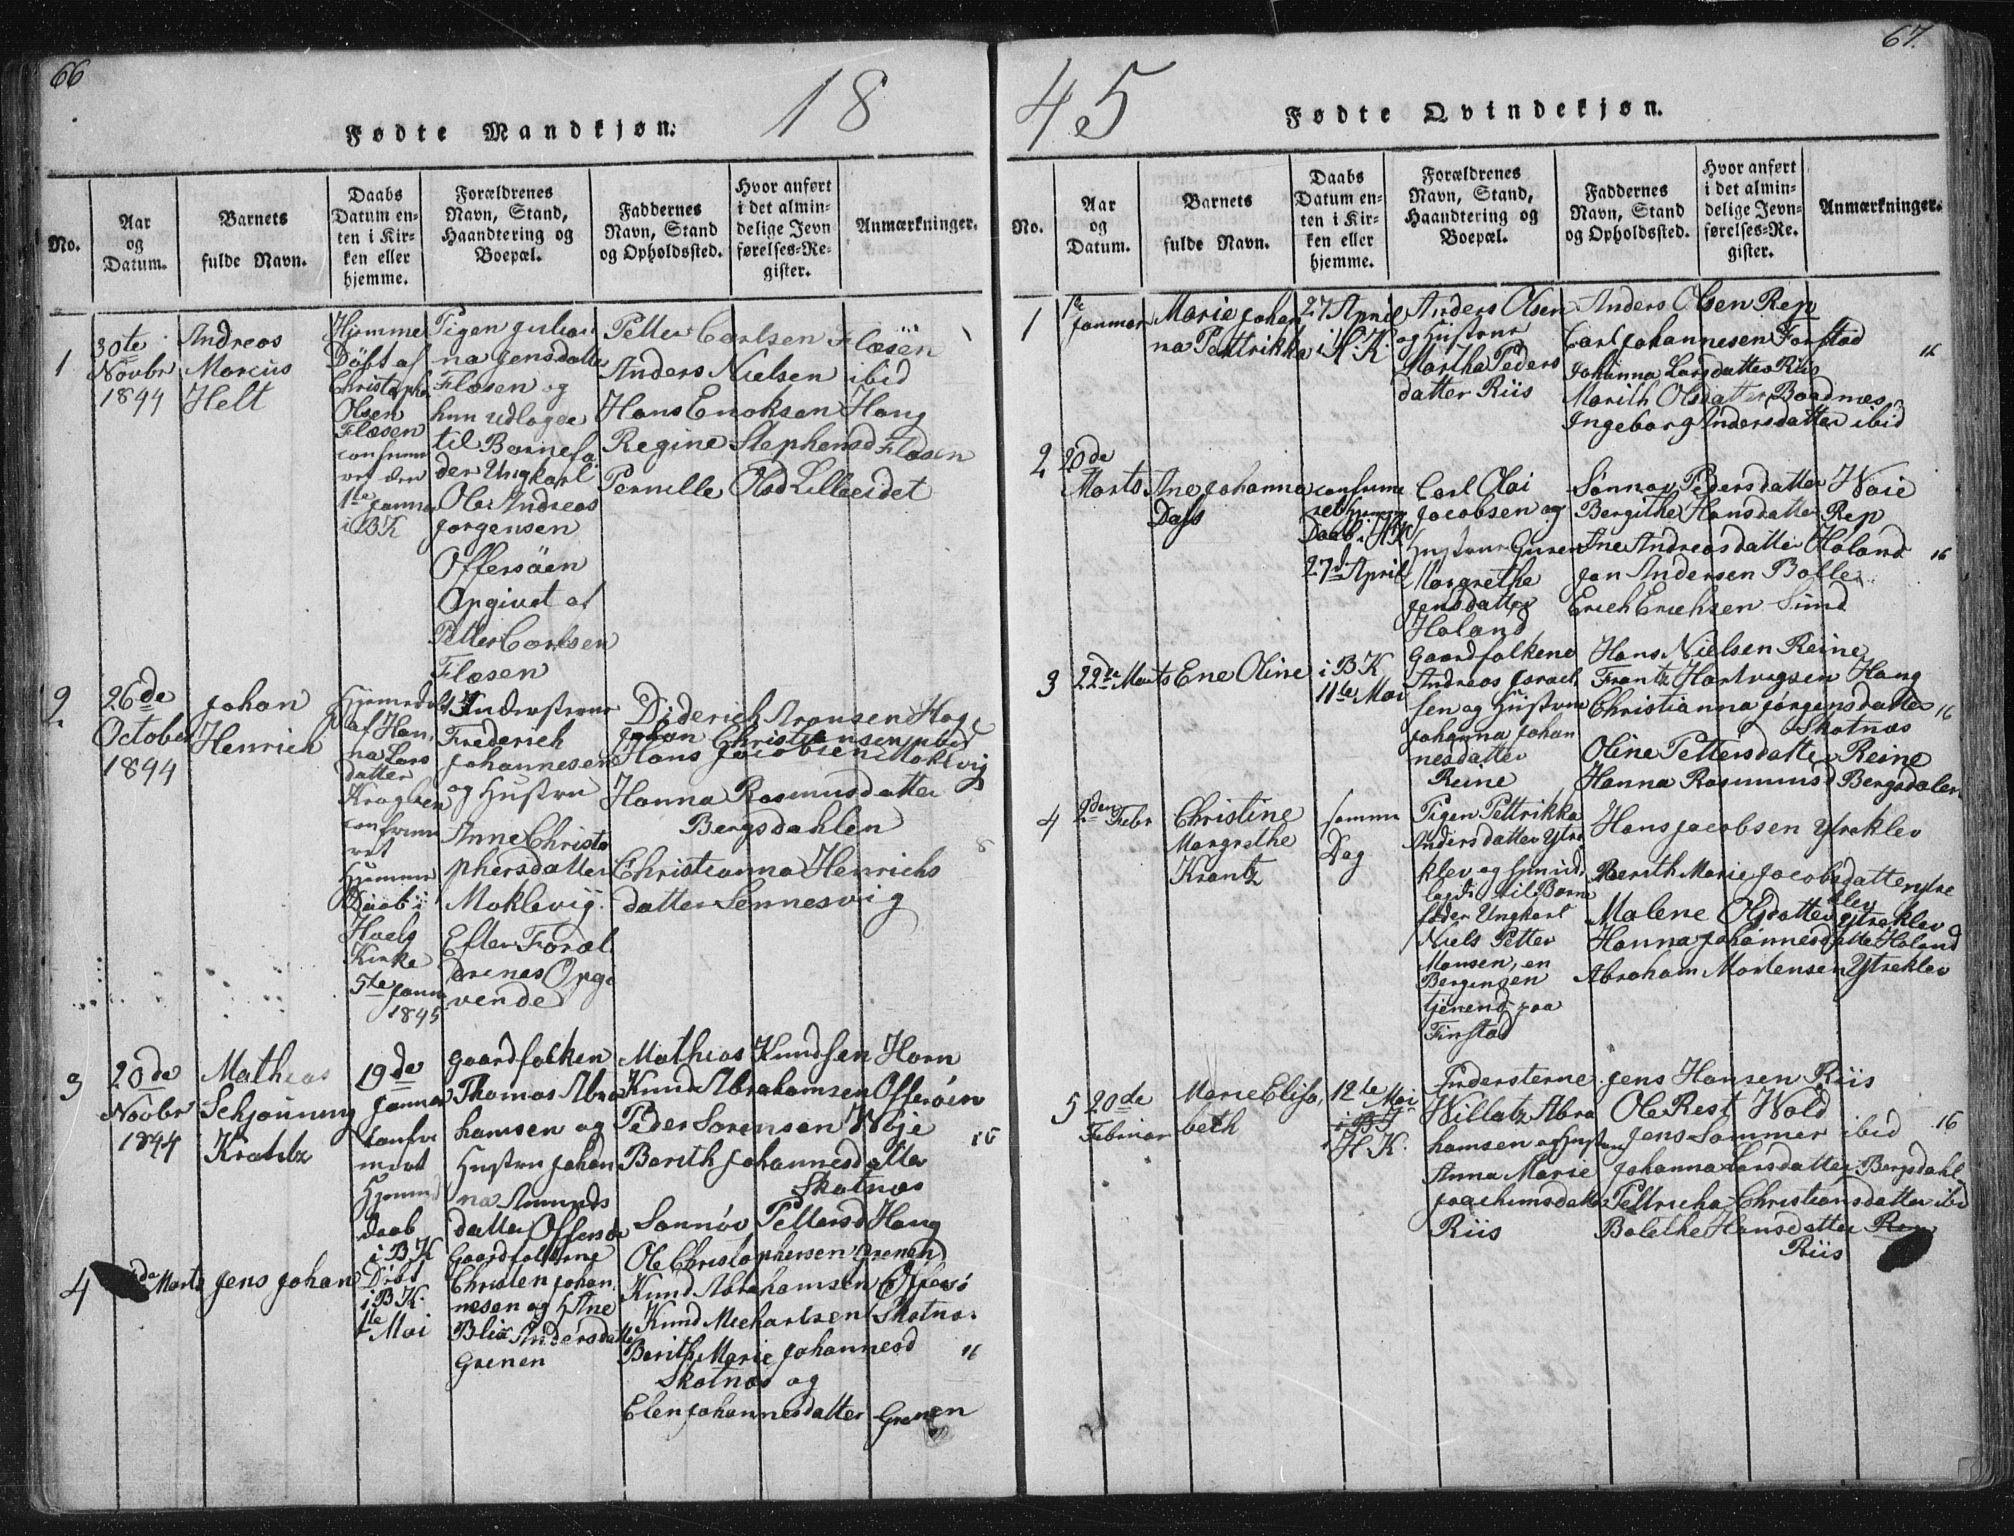 66
18
Fødte Mandkjøn.
No.
Aar
og
Datum.
Barnets
fulde Navn.
Daabs
Datum en-
ten i Kir-
ken eller
hjemme.
Forældrenes
Navn, Stand,
Haandtering og
Boepæl.
Faddernes
Navn, Stand
og Opholdssted.
Hvor anført
i det almin-
delige Jevn
førelses-Re-
gister.
Anmærkninger.
1
30te
Novbr
1844
Andreas
Marcus
Helt
Hjemme
Døbt af
Christoph.
Olsen
Flæsen
1te Januar
i BK
Pigen Julian
na Jensdatter
Flæsen og
hun udlagde
til Barnefa
der Ungkarl
Ole Andreas
Jørgensen
Offersøen
Opgivet af
Petter Carlsen
Flæsen
Petter Carlsen Flæsen
Anders Nielsen ibid
Hans Enoksen Haug
Regine Stephensd Flæsen
Pernille Olsd Lilleeidet
2
26de
October
1844
Johan
Henrich
af Han,
na Lars
datter
Kragleen
confirme
ret
Hjemme
Daab i
Hoels
Kirke
5te Janu
1845
Indersterne
Frederich
Johannesen
og Hustru
Anne Christo
phersdatter
Moklevig
Efter Foræl
drenes Opgi
vende
Diderich Aronsen Hag
Johan Christiansen ibid
Hans Jacobsen Moklvig
Hanna Rasmusdatter
Bergsdahlen
Christianna Henrichs
datter Sennesvig
8
3
20de
Novbr
1844
Mathias
Schjønning
Krantz
19de
Januar
confir
meret
Hjemme
daab
i BK
Gaardfolken
Thomas Abra
hamsen og
Hustru Johan
na Amunds
datter Offersø
Mathias Knudsen Horn
Knud Abrahamsen Offersøen
Peder Sørensen Woje
Berith Johannesdatter
Skotnæs
Sønnøv Pettersd Haug
16
4
Marts
Jens Johan
Døbt
i BK
1te Mai
Gaardfolkene
Christen Johan
nesen og H Ane
Blix Andersdatter
Grenen
Ole Christophersen Grenen
Knud Abrahamsen Offersø
Knud Michaelsen Skotnæs
Berith Marie Johannesd
Skotnæs og
Elen Johannesdatter Grenen
16
67.
45
Fødte Qvindekjøn.
No.
Aar
og
Datum.
Barnets
fulde Navn.
Daabs
Datum en-
ten i Kir-
ken eller
hjemme.
Forældrenes
Navn, Stand,
Haandtering og
Boepæl.
Faddernes
Navn, Stand
og Opholdssted.
Hvor anført
i det almin-
delige Jevn-
førelses-Re-
gister.
Anmærkninger.
1
1te
Januar
Marie Johan
na Pettrikka
27 April
i H.K
Anders Olsen
og Hustrue
Martha Peders
datter Riis
Anders Olsen Rep
Carl Johannesen Farstad
Johanna Larsdatter Riis
Marith Olsdatter Baadnæs
Ingeborg Andersdatter ibid
16
2
20de
Marts
Ane Johanna
Dass
confirme
ret Hjemme
Daab i HK
27de April
Carl Olai
Jacobsen og
Hustrue Guren
Margrethe
Jensdatter
Holand
Sønnøv Pedersdatter Woie
Bergithe Hansdatter Rep
Ane Andreasdatter Holand
Jon Andersen Bolle
Erich Erichsen Sund
16
3
22de Marts
Ene Oline
i BK
11te Mai
Gaardfolkene
Andreas Israel
sen og Hustrue
Johanna Johan
nesdatter
Reine
Hans Nielsen Reine
Frantz Hartvigsen Haug
Christianna Jørgensdatter
Skotnæs
Oline Pettersdatter Reine
Hanna Rasmusd Bergsdalen
16
4
Febr
Christine
Margrethe
Krantz
samme
Dag
Pigen Pettrikka
Andersdatter Ytre
klev og hun ud
lagdt til Barn
fader Ungkarl
Niels Petter
Monsen, en
Bergensen
tjenend paa
Finstad
Hans Jacobsen Ytreklev
Berith Marie Jacobsdatter Ytre
klev
Malene Olsdatter Ytreklev
Hanna Johannesdatter Holand
Abraham Mortensen Ytreklev
5
20de
Februar
Marie Elisa,
beth
12te Mai
i BK
i H.K.
Indersterne
Willatz Abra
hamsen og Hustru
Anna Marie
Joachimsdatter
Riis
Jens Hansen Riis
Ole Rest Wold
Jens Sommer ibid
Johanna Larsdatter Bergsdahl
Pettricha Christiansdatter ibid
Bolethe Hansdatter
Riis
16